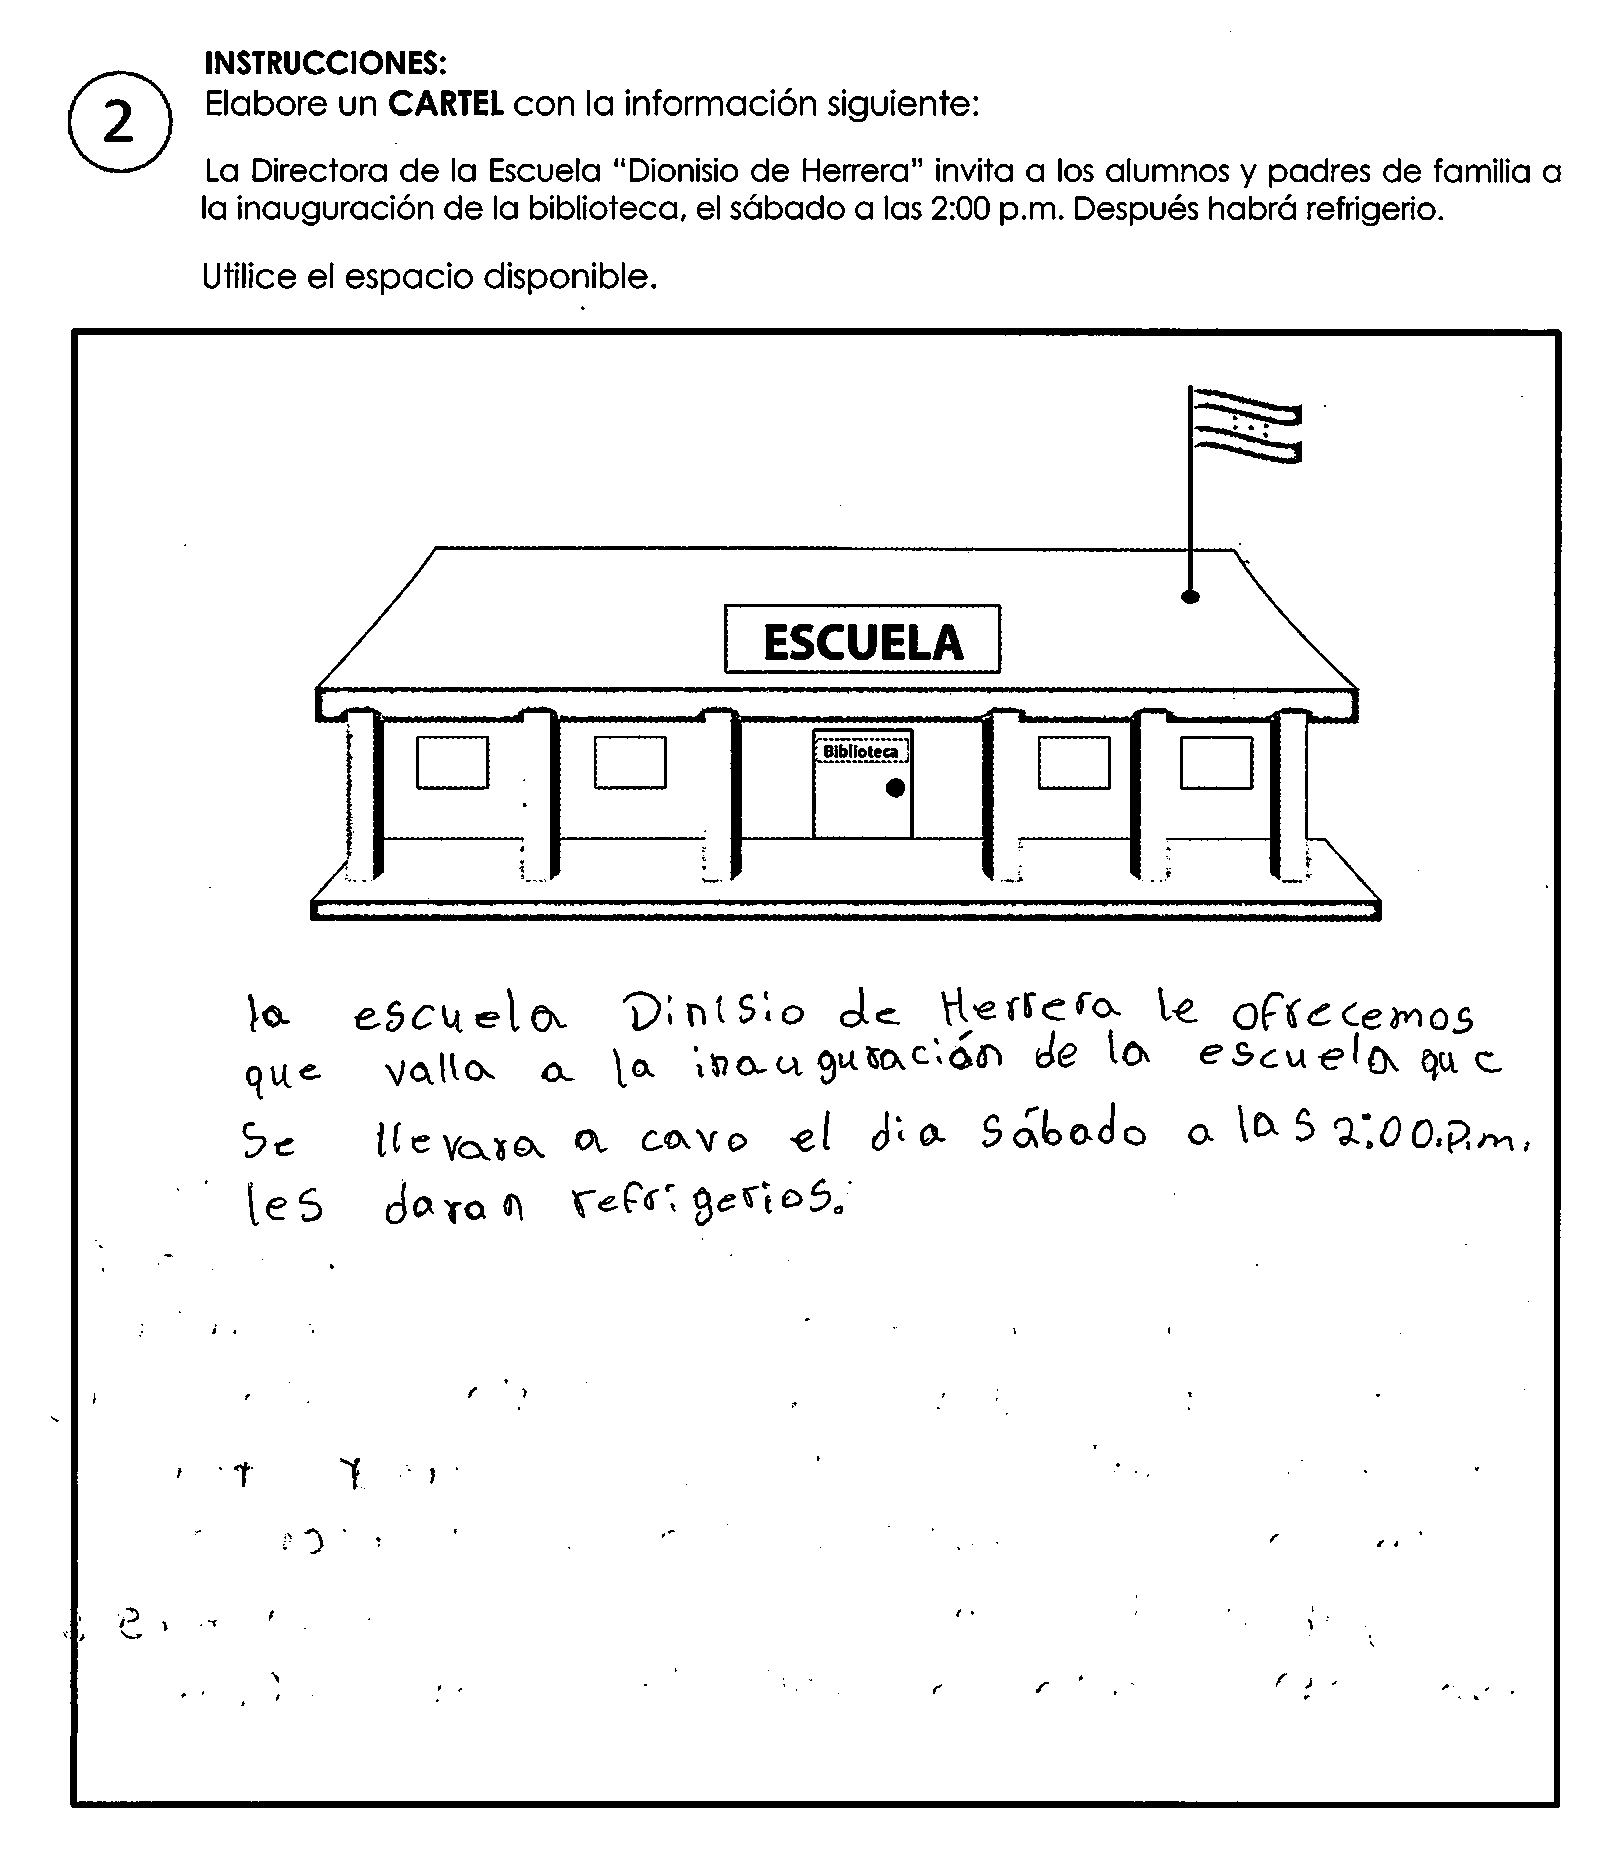 INSTRUCCIONES:
2
Elabore un CARTEL con la información siguiente:
La Directora de la Escuela "Dionisio de Herrera" invita a los alumnos y padres de familia a
la inauguración de la biblioteca, el sábado a las 2:00 p.m. Después habrá refrigerio.
Utilice el espacio disponible.
ESCUELA
Biblioteca
la escuela Dinisio de Herrera le ofrecemos
que valla a la inauguración de la escuela que
se llevara a cavo el dia sábado a las 2:00.p.m.
les daran refrigerios.